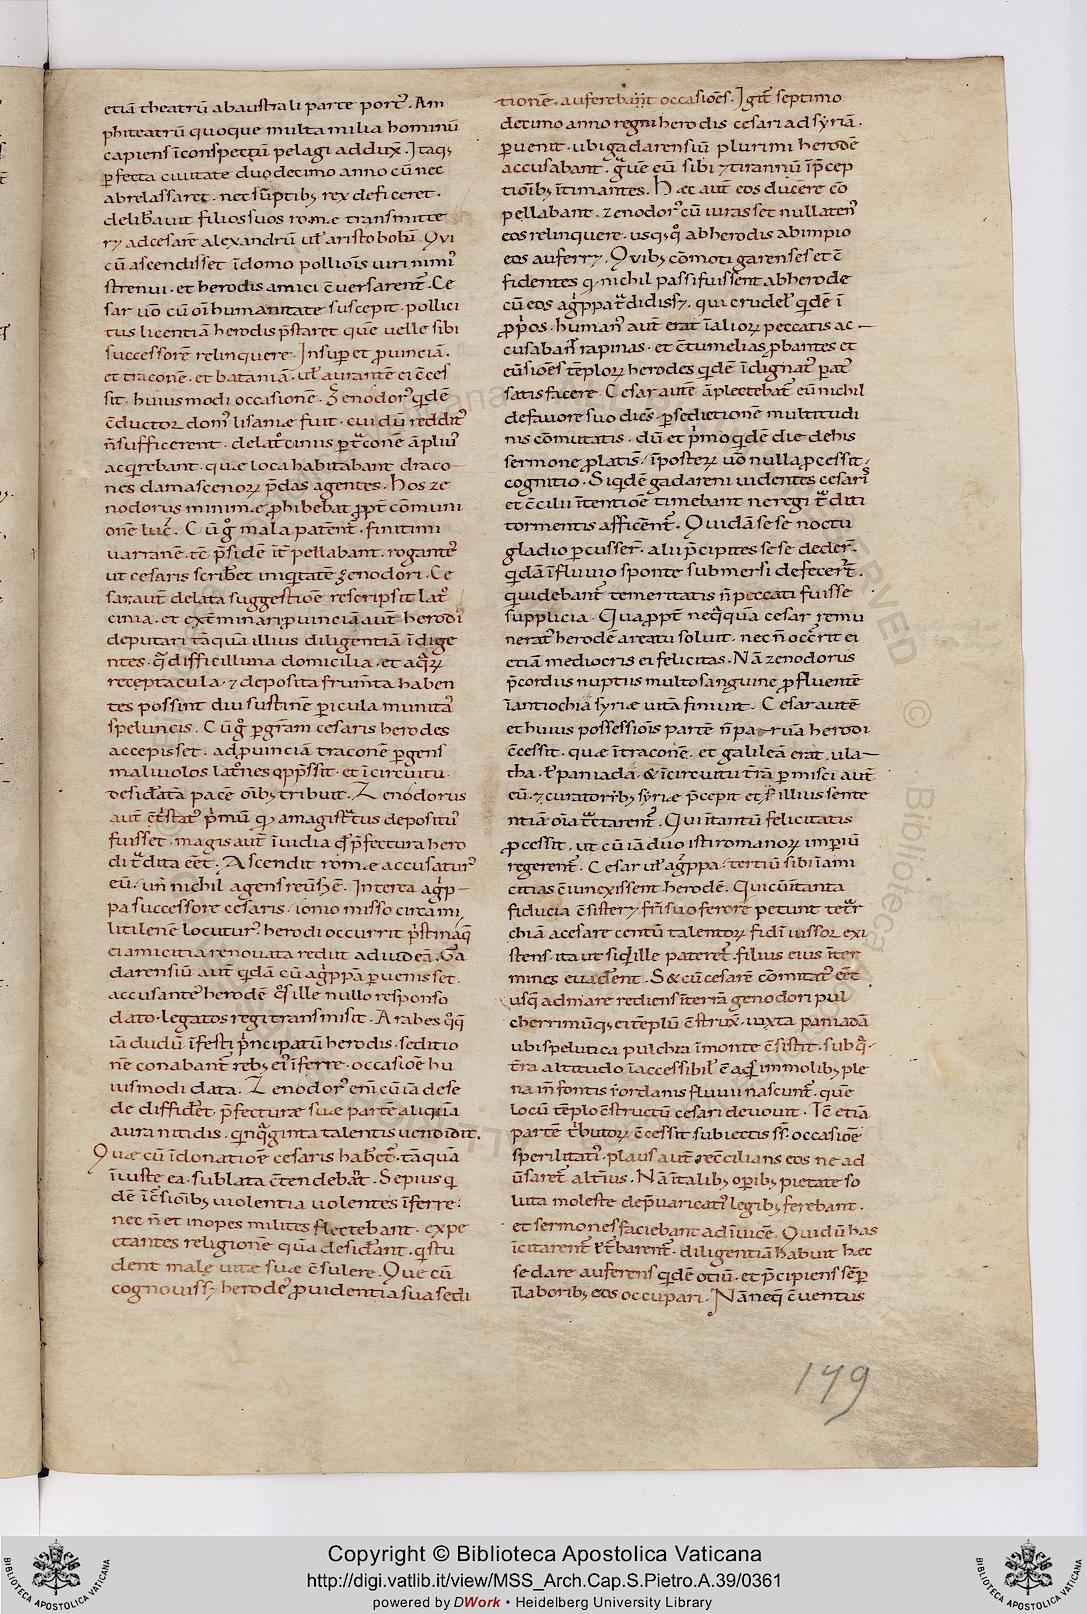 etiā theatrū abaustrali parte port᷑. Am
phiteatrū quoque multa milia hominū
capiens īconspectū pelagi addux̄. Itaq;
ꝑfecta ciuitate duodecimo anno cū nec
abrelassaret. nec sūptib; rex deficeret.
delibauit filios suos romæ transmitte
rꝫ adcesarē alexandrū ul̄ aristobolū. Qui
cū ascendisset īdomo pollioīs uiri nimi᷒
strenui. et herodis amici c̄uersarent᷑. Ce
sar uō cū oī humanitate suscepit. pollici
tus licentiā herodis p̄staret quē uelle sibi
successorē relinquere. Insuꝑ et prouinciā.
et traconē. et bataniā. ul̄ aurantē ei c̄ces
sit. huiusmodi occasionē. Zenodor᷒ qͥdē
c̄ductor dom᷒ lisaniæ fuit. cui dū reddit᷒
n̄sufficerent. delat᷑ cinus ꝑtͣconē āpliu᷒
acqͥrebant. quæ loca habitabant draco
nes damascenoꝝ p̄das agentes. hos ze
nodorus minimæ ꝓhibebat ꝓpt᷑ cōmuni
onē luc̄. Cū gͦ mala patent᷑. finitimi
uarranē. tc̄ p̄sidē īt᷑pellabant. rogante᷒
ut cesaris scriberet iniqͥtatē zenodori. Ce
sar. aut̄ delata suggestiōe rescripsit lat᷑
cinia. et ext᷑minari ꝓuinciā aut̄ herodi᷒
deputari tāquā illius diligentiā īdige
ntes. qͣ difficillima domicilia. et aqͣꝝ
receptacula. ⁊ deposita frum̄ta haben
tes possint diu sustinē ꝑicula munita᷒
speluncis. Cū gͦ ꝑgͣtiam cesaris herodes
accepisset. adꝓuinciā traconē ꝑgens
maliuolos lat᷑nes oppͥssit. et īcircuitu
desidͤata pacē oīb; tribuit. Zenodorus
aut̄ c̄tͥstat᷒ pͥmū qͥ amagistͣtus depositu᷒
fuisset. magis aut̄ īuidia qd̄ p̄fectura hero
di tͣdita eēt. Ascendit romæ accusatur᷒
eū. un̄ nichil agens reūs ē. Interea agͥp
pa successore cesaris. ionio misso circa mi
litilenē locutur᷒ herodi occurrit pͥstināq
ei amicitia renouata rediit ad iudeā. Ga
darensiū aut̄ qͥdā cū agͥppā ꝑuenisset.
accusante᷒ herodē qͦs ille nullo responso
dato. legatos regi transmisit. Arabes qͦq
iā dudū īfesti pͥncipatū herodis. seditio
nē conabant᷑ reb; ei᷒ īferre. occasiōe hu
iusmodi data. Zenodor᷒ eni̅ cū iā dese
de diffidet. p̄fecturæ suæ partē aliquā
auranitidis. qͥnqͣginta talentis uendidit.
Quæ cū īdonatiōe cesaris haberet᷑. tāquā
īiuste ea. sublata c̄tendebāt᷑. Sepius qͥ
dē īc̄siōib; uiolentia uolentes īferre.
nec n̄ et inopes milites flectebant. expe
ctantes religionē quā desidͤant. qͥ stu
dent male uitæ suæ c̄sulere. Que cū
cognouissꝫ herodes ꝓuidentia sua sedi
tionē. auferebat occasiōes. Igit᷑ septimo
decimo anno regni herodis cesari ad syriā.
ꝑuenit. ubi gadarensiū plurimi herodē
accusabant. gͣuē eū sibi ⁊ tirannū īpͤcep
tiōib; ītimantes. Hæc aut̄ eos ducere cō
pellabant. zenodor᷒ cū iurasset nullaten᷒
eos relinquere. usq; qͦ abherodis abimpio
eos auferrꝫ. Quib; cōmoti garenses et c̄
fidentes qͥ nichil passi fuissent abherode
cū eos agͥppa tͣdidissꝫ. qui crudel᷒ qͥdē ī
ꝓpͥos. human᷒ aut̄ erat īalioꝝ peccatis ac
cusabant᷑ rapinas. et c̄tumelias ꝓbantes et
eūsiōes tēploꝝ herodes qͥdē īdignat᷒ parat᷒
satisfacere. Cesar autē āplectebat᷑ eū nichil
defauore suo dies. ꝑseditionē multitudi
nis cōmutatis. dū et pͥmo qͥdē die dehis
sermone ꝓlatis. īposteꝝ uō nulla ꝓcessit.
cognitio. Siqͥdē gadareni uidentes cesari᷒
et c̄cilii ītentiōē timebant ne regi tͣditi
tormentis afficerent᷑. Quidā sese noctu
gladio ꝑcusser̄. alii pͥcipites sese dederͭ.
qͥdā īfluuio sponte submersi defecer̄t.
qͥ uidebant᷑ temeritatis n̄ peccati fuisse
supplicia. Quapropt᷑ neqͥquā cesar remu
nerat᷒ herodē areatu soluit. nec n̄ occͥrit ei
etiā mediocris ei felicitas. Nā zenodorus
p̄cordiis nuptiis multo sanguine ꝓfluentē
īantiochiā syriæ uitā finiunt. Cesar autē
et huius possessiōis partē n̄ paruā herodi
c̄cessit. quæ ītraconē. et galileā erat. ula
tha. et᷑ paniadā. & īcircuitu tr̄ā ꝑmisci aut̄
eū. ⁊ curatorib; syriæ p̄cepit et s᷑ illius sente
ntiā oīa tͣctarent᷑. Qui ītantū felicitatis
ꝓcessit. ut cū iā duo isti romanoꝝ imperiū
regerent᷑. Cesar ul̄ agͥppa. tertiū sibi īami
citias c̄iunxissent herodē. Qui cū ītanta
fiducia c̄sisterꝫ frī suo ferore petunt tetͣr
chiā acesare centū talentoꝝ fidī iussor exi
stens. ita ut siqͥd ille pateret᷑. filius eius īter
mines euaderet. S& cū cesarē cōmitat᷒ eēt
usq̄ admare rediens īterrā genodori pul
cherrimūq; ei tēplū c̄strux̄. iuxta paniadā
ubi spelunca pulchra īmonte c̄sistit. subqͣ
tr̄a altitudo īaccessibil᷒ ē aqͥs immolib; ple
na in fontis iordanis fluuii nascunt᷑. quē
locū tēplo c̄structū cesari deuouit. Tc̄ etiā
partē tͥbutoꝝ c̄cessit subiectis ss̄. occasiōe
sperilitati᷒. plaus aut̄ recilians eos ne ad
ūsaret᷑ altius. Nā ītalib; oꝑib; pietate so
luta moleste dep̄uaricati᷒ legib; ferebant.
et sermones faciebant ad īuicē. Qui dū has
īcitarent᷑ et᷑ t᷑barent᷑. diligentiā habuit hæc
sedare auferens qͥdē otiū. et p̄cipiens sēꝑ
īlaborib; eos occupari. Nā neq̄ c̄uentus
149
Copyright © Biblioteca Apostolica Vaticana
http://digi.vatlib.it/view/MSS_Arch.Cap.S.Pietro.A.39/0361
powered by DWork • Heidelberg University Library